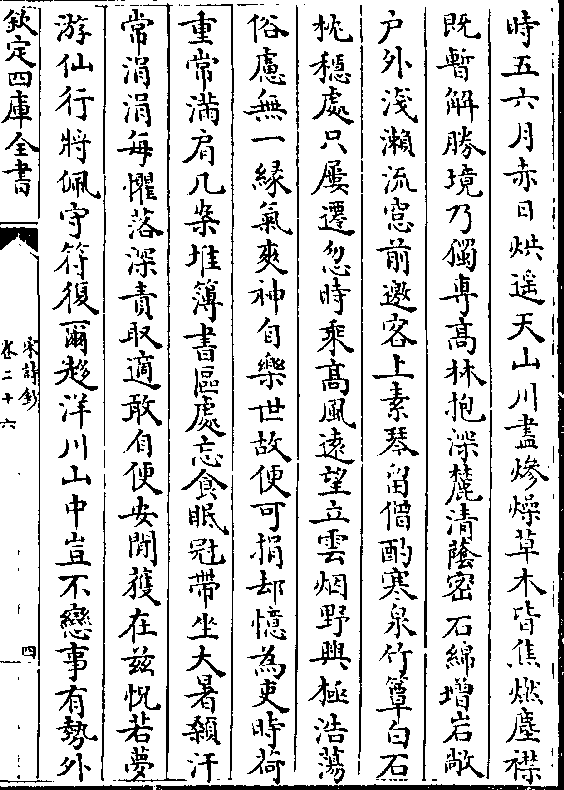 時五六月赤日烘遥天山川盡熮燥草木皆焦燃塵襟
既暫解勝境乃獨専髙林抱深麓清蔭密石綿增岩敞
户外淺瀨流窓前邀客上素琴留僧酌寒泉竹簟白石
枕穩處只屢遷忽時乘髙風遠望立雲烟野興極浩蕩
俗慮無一縁氣爽神自樂世故便可捐却憶為吏時荷
重常滿肩几案堆簿書區處忘食眠冠帶坐大暑顙汗
常涓涓每懼落深責取適敢自便安閒獲在兹怳若夢
游仙行將佩守符復爾趍洋川山中豈不戀事有勢外
欽定四庫全書
宋詩鈔
卷二十六
四